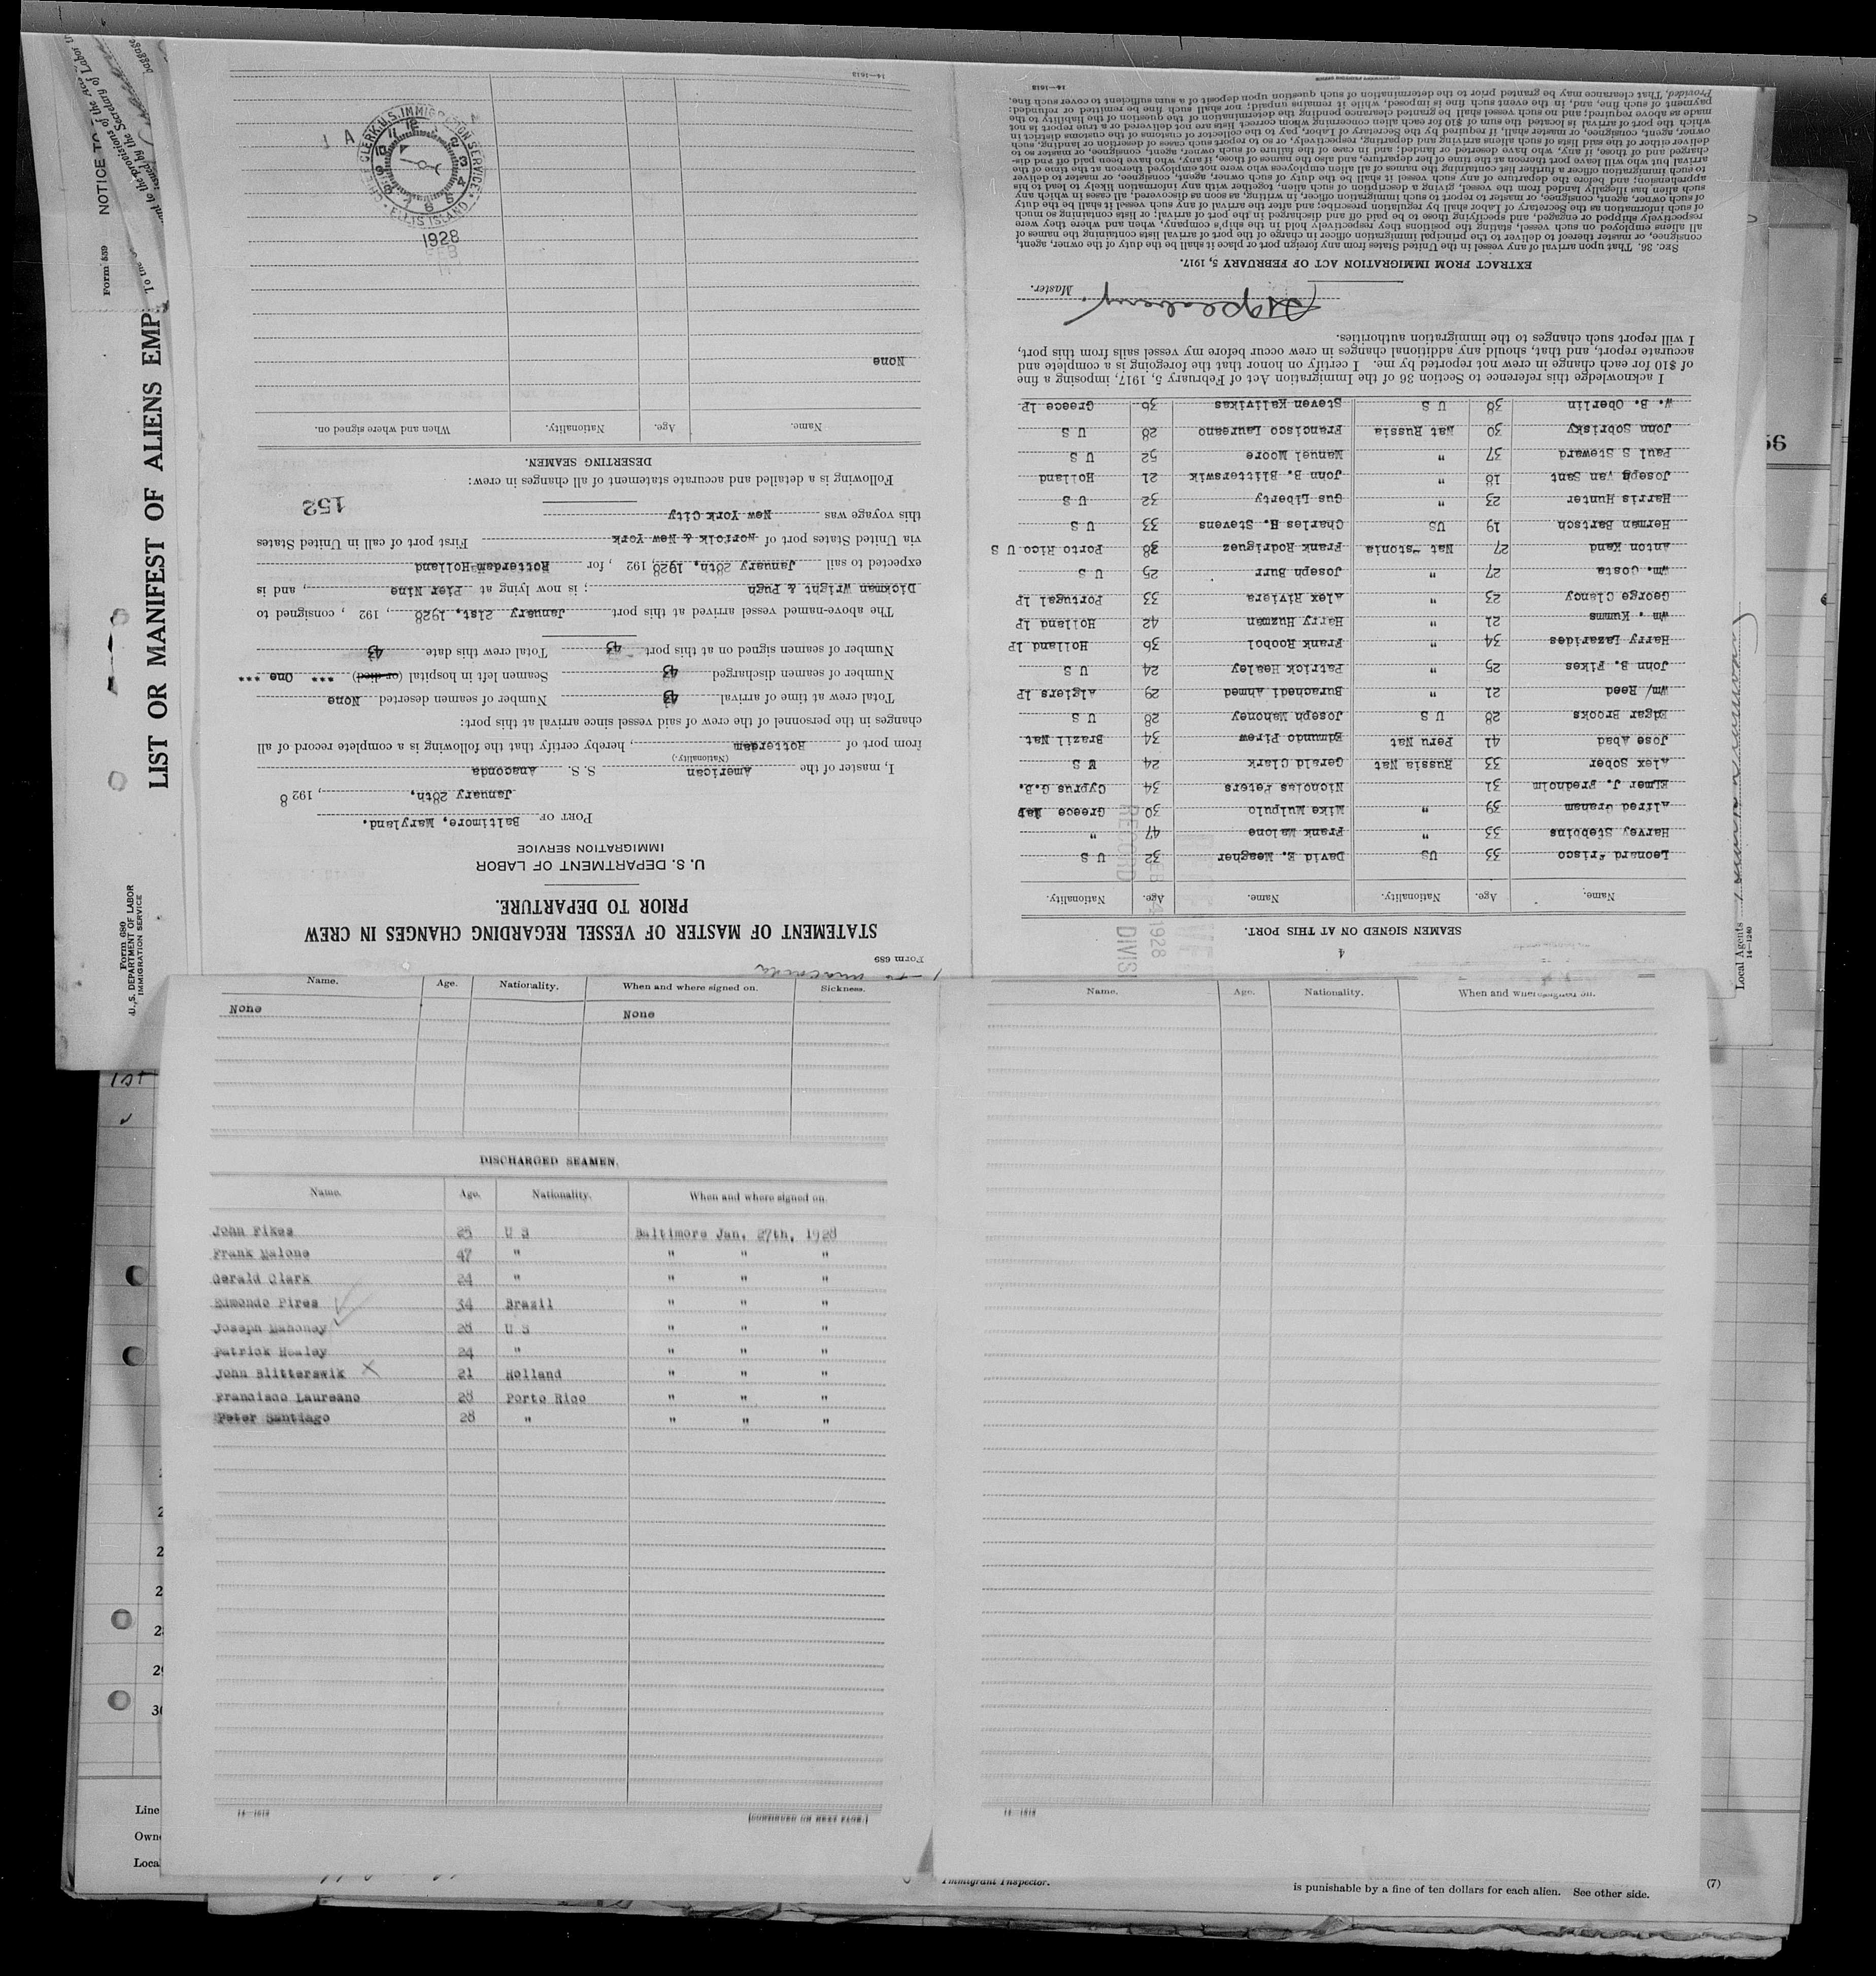 Form 689
STATEMENT OF MASTER OF VESSEL REGARDING CHANGES IN CREW
PRIOR TO DEPARTURE.
U. S. DEPARTMENT OF LABOR
IMMIGRATION SERVICE
PORT OF Baltimore, Maryland.
January 28th, , 192 8
I, master of the American S. S. Anaconda
(Nationality.)
from port of Rotterdam , hereby certify that the following is a complete record of all
changes in the personnel of the crew of said vessel since arrival at this port:
Total crew at time of arrival 43 Number of seamen deserted None
Number of seamen discharged 43 Seamen left in hospital (or died) *** One ***
Number of seamen signed on at this port 43 Total crew this date 43
The above-named vessel arrived at this port January 21st, 1928 , 192 , consigned to
Dickman Wright & Pugh ; is now lying at Pier Nine , and is
expected to sail January 28th, 1928, 192 , for Rotterdam Holland
via United States port of Norfolk & New York First port of call in United States
this voyage was New York City
152
Following is a detailed and accurate statement of all changes in crew:
DESERTING SEAMEN.
Name. Age. Nationality. When and where signed on.
None
1928
U.S. IMMIGRATION SERVICE
ELLIS ISLAND
14—1618
4
SEAMEN SIGNED ON AT THIS PORT.
Name. Age. Nationality. Name. Age. Nationality.
Leonard Frisco 33 US David E. Meagher 32 U S
Harvey Stebbins 33 " Frank Malone 47 "
Alfred Graham 39 " Mike Mulpulo 30 Greece
Elmer J. Fredholm 31 Nicholus Peters 34 Cyprus G.B.
Alex Sober 33 Russia Nat Gerald Clark 24 U S
Jose Abad 41 Peru Nat Edmundo Pirew 34 Brazil Nat
Edgar Brooks 28 U S Joseph Mahoney 28 U S
Wm/ Reed 21 " Burachedi Ahmed 29 Algiers lP
John B. Fikes 25 " Patrick Healey 24 U S
Harry Lazarides 34 " Frank Roobol 36 Holland lP
Wm . Kumms 21 " Harry Huzman 42 Holland lP
George Clancy 23 " Alex Riviera 33 Portugal lP
Wm. Costa 27 " Joseph Burr 25 U S
Anton Kand 27 Nat Estonia Frank Rodriguez 38 Porto Rico U S
Herman Bartsch 19 US Charles H. Stevens 33 U S
Harris Hunter 23 " Gus Liberty 32 U S
Joseph van Sant 18 " John B. Blitterswik 21 Holland
Paul S Steward 37 " Manuel Moore 52 U S
John Sobrisky 30 Nat Russia Francisco Laureano 28 U S
W. B. Oberlin 38 U S Steven Kalivikas 36 Greece lP
I acknowledge this reference to Section 36 of the Immigration Act of February 5, 1917, imposing a fine
of $10 for each change in crew not reported by me. I certify on honor that the foregoing is a complete and
accurate report, and that, should any additional changes in crew occur before my vessel sails from this port,
I will report such changes to the immigration authorities.
Master.
EXTRACT FROM IMMIGRATION ACT OF FEBRUARY 5, 1917.
Sec. 36. That upon arrival of any vessel in the United States from any foreign port or place it shall be the duty of the owner, agent,
consignee, or master thereof to deliver to the principal immigration officer in charge of the port of arrival lists containing the names of
all aliens employed on such vessel, stating the positions they respectively hold in the ship's company, when and where they were
respectively shipped or engaged, and specifying those to be paid off and discharged in the port of arrival; or lists containing so much
of such information as the Secretary of Labor shall by regulation prescribe; and after the arrival of any such vessel it shall be the duty
of such owner, agent, consignee, or master to report to such immigration officer, in writing, as soon as discovered, all cases in which any
such alien has illegally landed from the vessel, giving a description of such alien, together with any information likely to lead to his
apprehension; and before the departure of any such vessel it shall be the duty of such owner, agent, consignee, or master to deliver
to such immigration officer a further list containing the names of all alien employees who were not employed thereon at the time of the
arrival but who will leave port thereon at the time of her departure, and also the names of those, if any, who have been paid off and dis-
charged and of those, if any, who have deserted or landed; and in case of the failure of such owner, agent, consignee, or master so to
deliver either of the said lists of such aliens arriving and departing, respectively, or so to report such cases of desertion or landing, such
owner, agent, consignee, or master, shall, if required by the Secretary of Labor, pay to the collector of customs of the customs district in
which the port of arrival is located the sum of $10 for each alien concerning whom correct lists are not delivered or a true report is not
made as above required; and no such vessel shall be granted clearance pending the determination of the question of the liability to the
payment of such fine, and, in the event such fine is imposed, while it remains unpaid; nor shall such fine be remitted or refunded:
Provided, That clearance may be granted prior to the determination of such question upon deposit of a sum sufficient to cover such fine.
14—1618
Name. Age. Nationality. When and where signed on. Sickness.
None None
DISCHARGED SEAMEN.
Name. Age. Nationality. When and where signed on.
John Fikes 25 U S Baltimore Jan. 27th, 1928
Frank Malone 47 " " " "
Gerald Clark 24 " " " "
Edmondo Pires 34 Brazil " " "
Joseph Mahoney 28 U S " " "
Patrick Healey 24 " " " "
John Blitterswik X 21 Holland " " "
Francisco Laureano 28 Porto Rico " " "
Peter Santiago 28 " " " "
14—1618
(CONTINUED ON NEXT PAGE.)
Name. Age. Nationality. When and where signed on.
14—1618
Form 539 NOTICE TO
LIST OR MANIFEST OF ALIENS EMP
Form 689
U.S. DEPARTMENT OF LABOR
IMMIGRATION SERVICE
Local Agents
14—1240
56
1st
29
Line
Own
Loca
Immigrant Inspector.
is punishable by a fine of ten dollars for each alien. See other side.
(7)